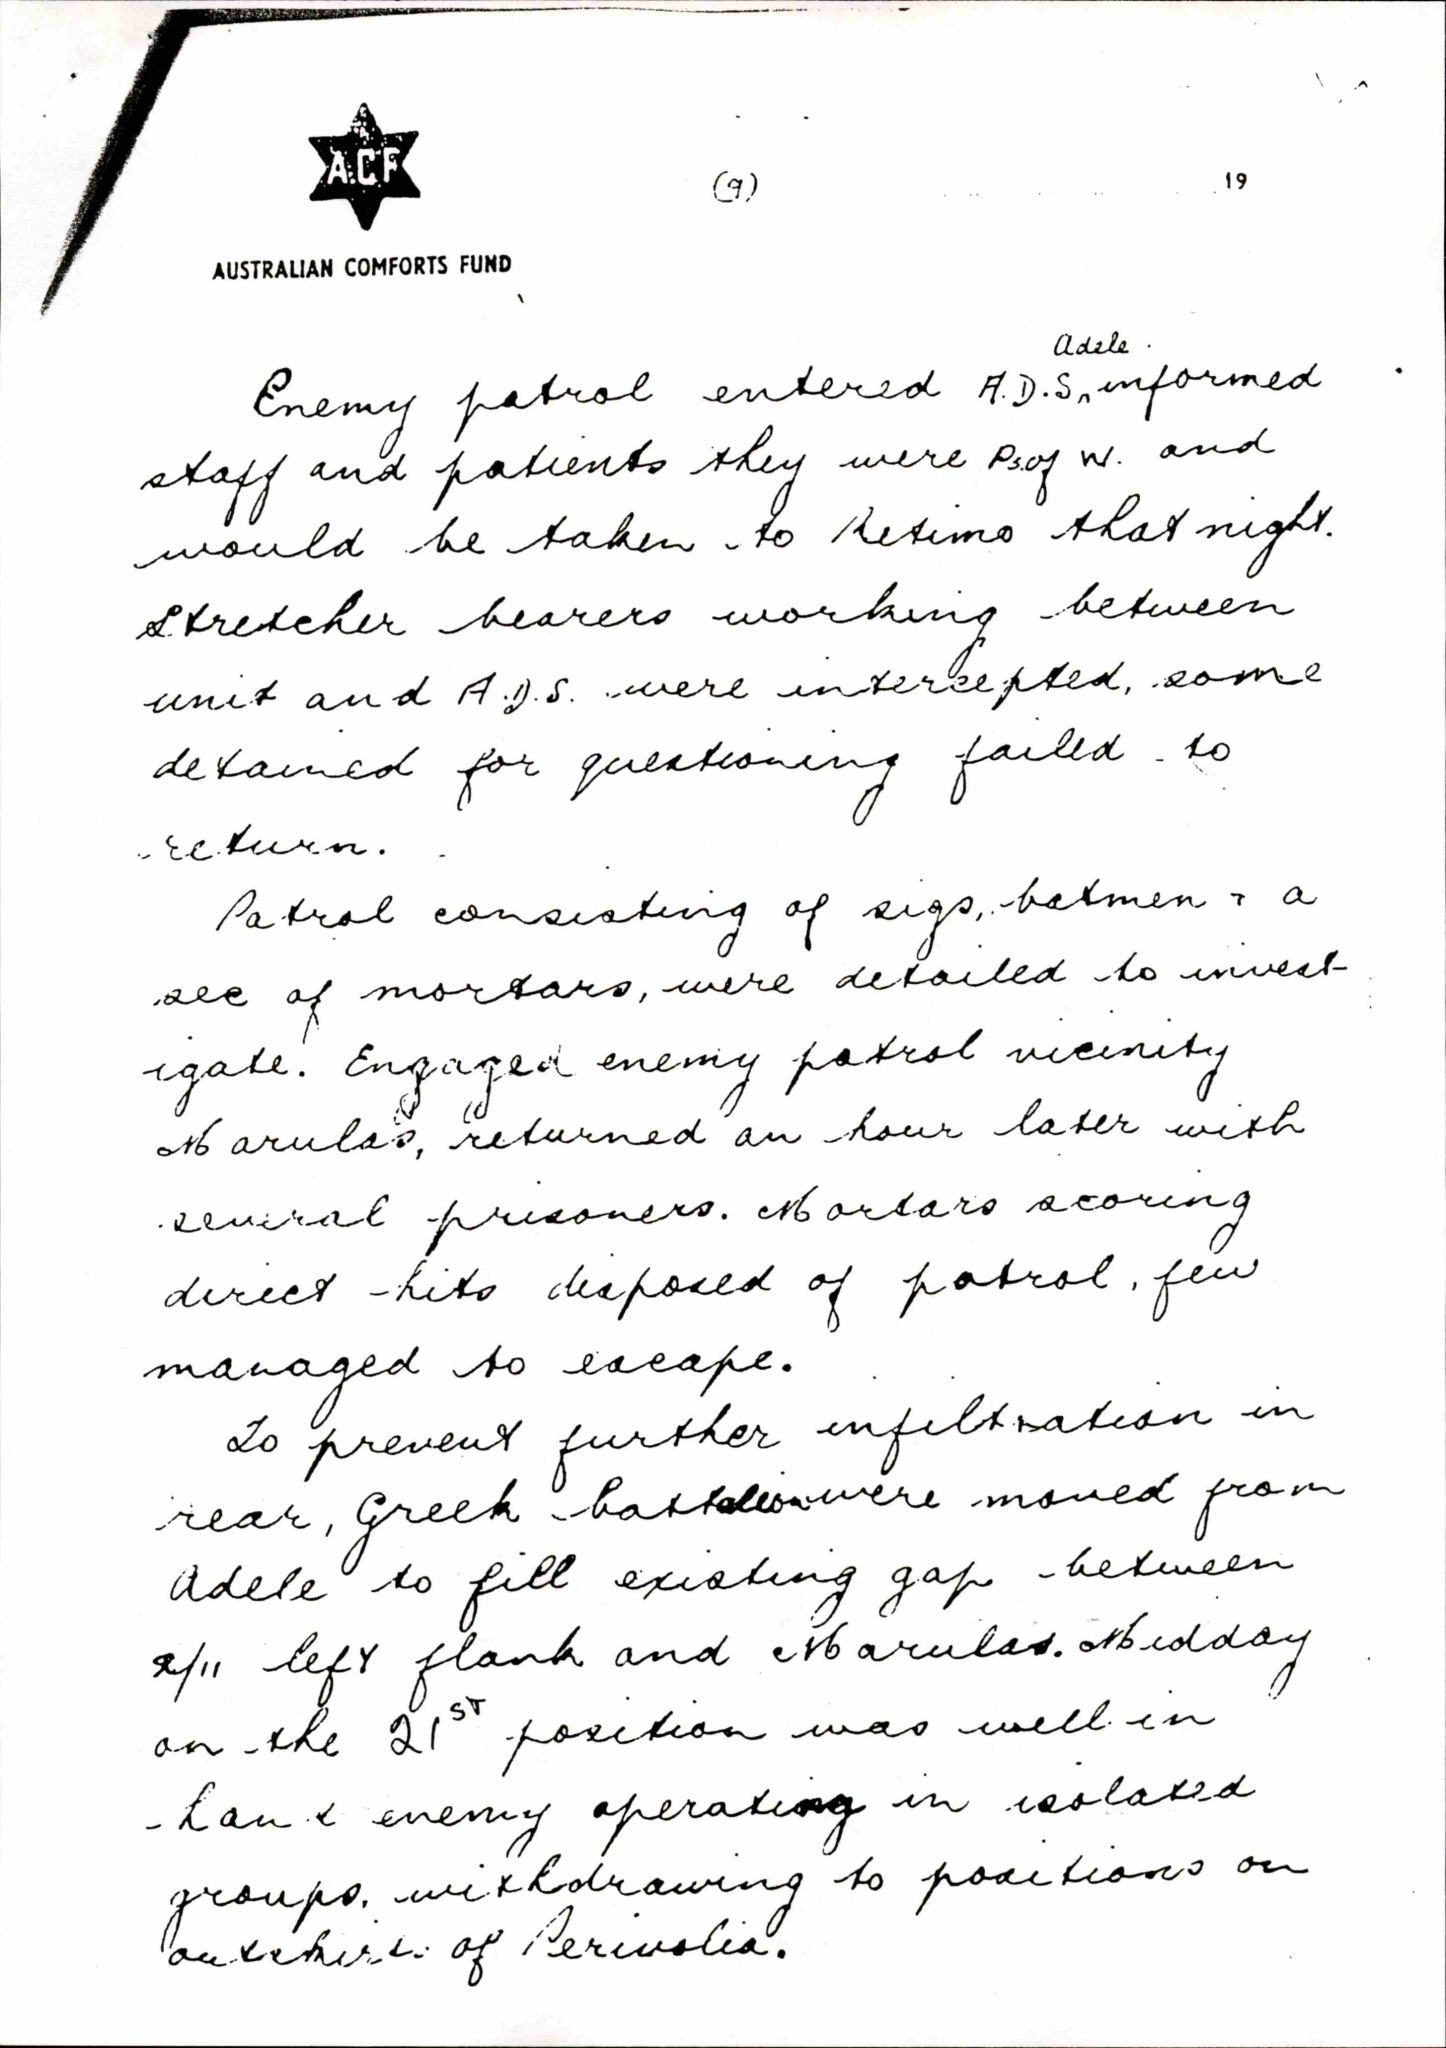 A.C.F
(9)
19
AUSTRALIAN COMFORTS FUND
Adele
Enemy patrol entered A.D.S. informed
staff and patients they were Ps.of W. and
would be taken to Retimo that night.
Stretcher bearers working between
unit and A.D.S. were intercepted, some
detained for questioning failed to
return.
Patrol consisting of sigs, batmen & a
sec of mortars, were detailed to invest-
igate. Engaged enemy patrol vicinity
Marulas, returned an hour later with
several prisoners. Mortars scoring
direct hits disposed of patrol, few
managed to escape.
To prevent further infiltration in
rear, Greek battalion were moved from
Adele to fill existing gap between
2/11 left flank and Marulas. Midday
on the 21ST position was well in
hand enemy operating in isolated
groups, withdrawing to positions on
outskirts of Perivolia.